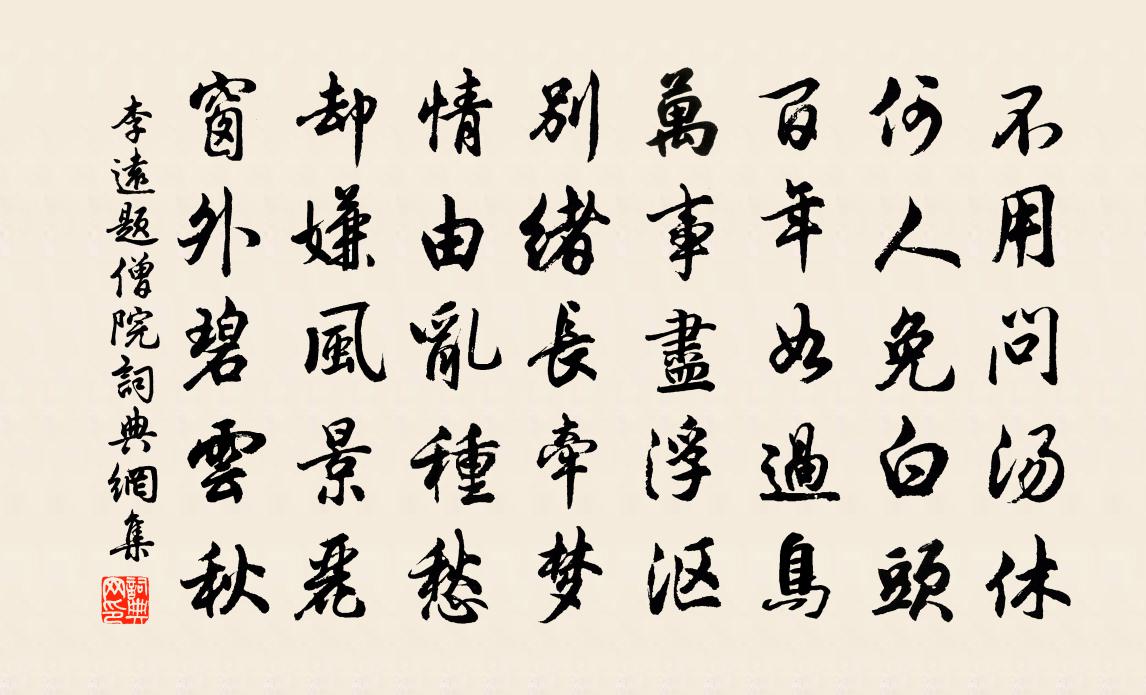 不用問湯休
何人免白頭
百年如過鳥
萬事盡浮漚
別緒長牽梦
情由亂種愁
却嫌風景麗
窗外碧雲秋
李遠題僧院詞典網集
詞典网印